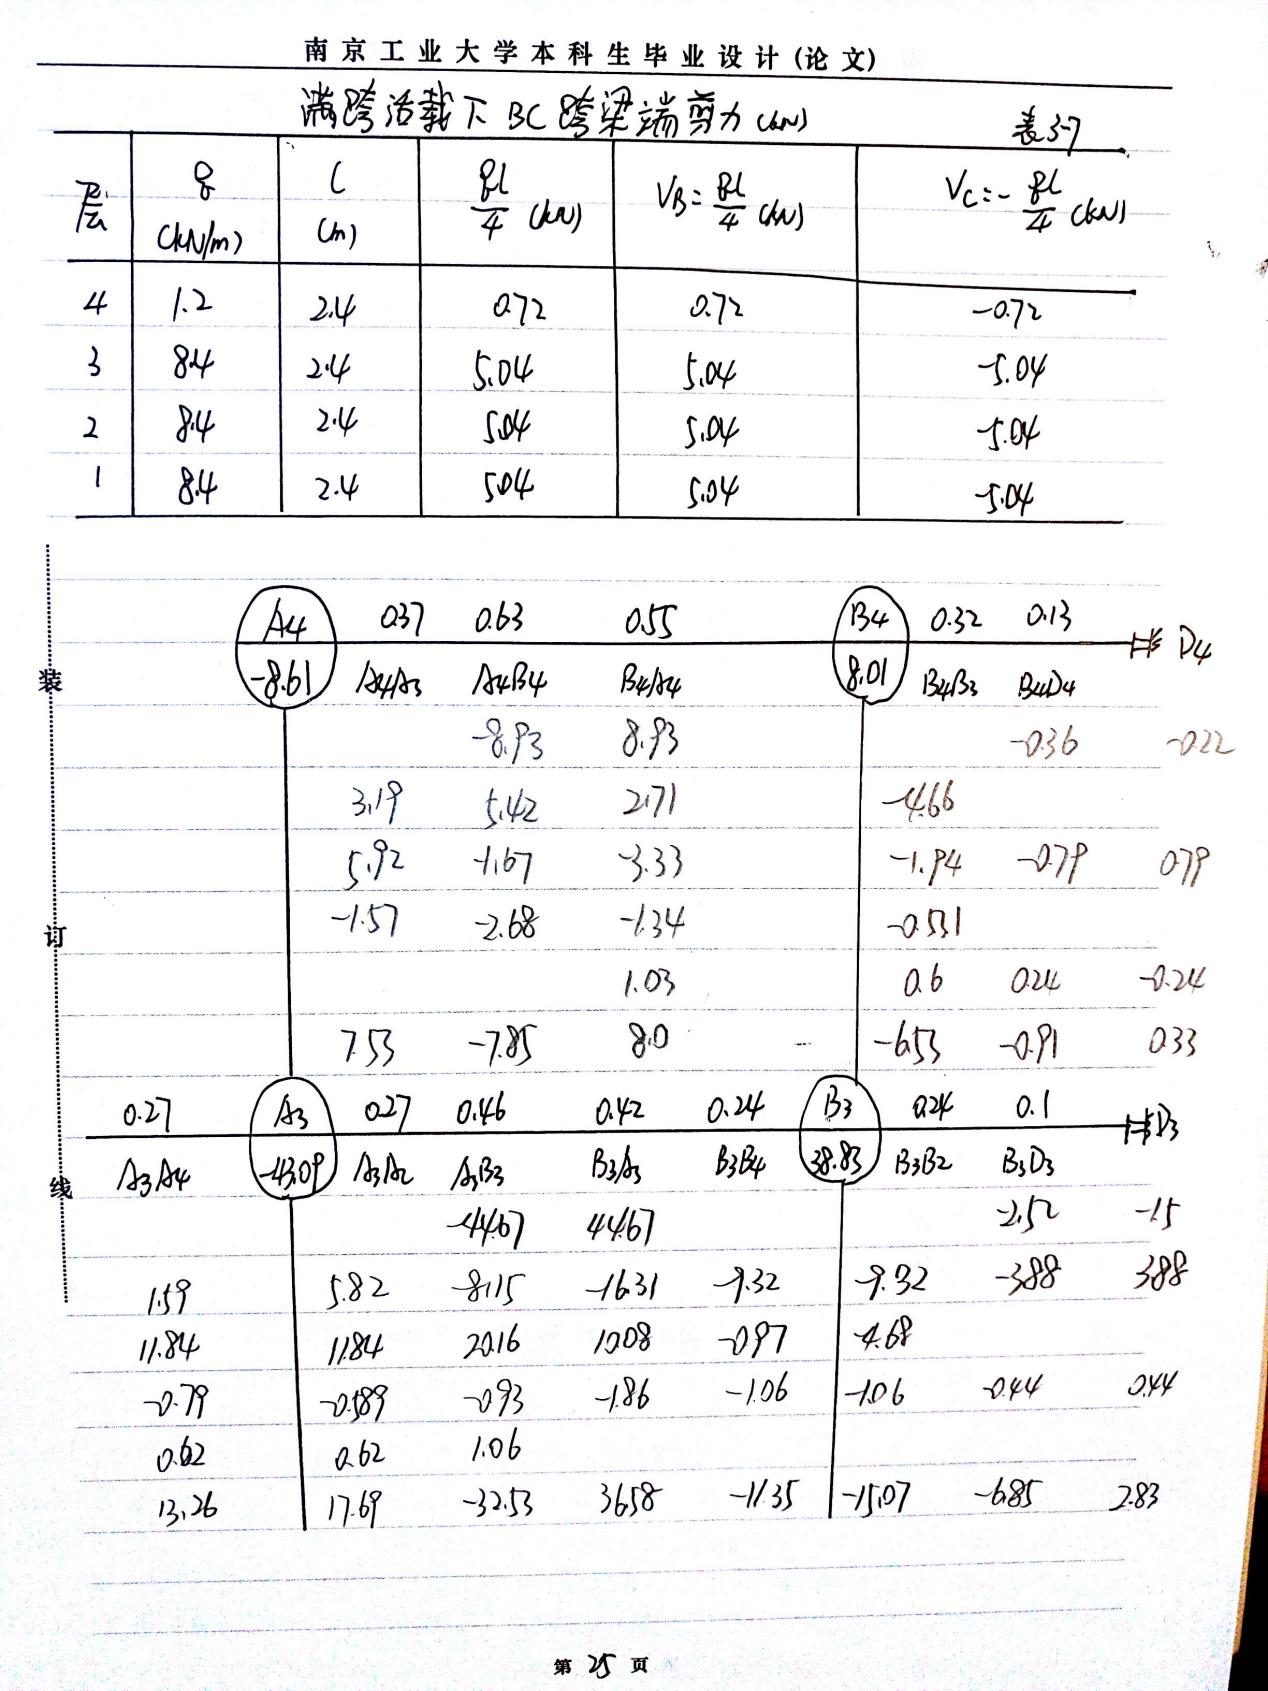 南京工业大学本科生毕业设计(论文)
满跨活载下BC跨梁端剪力(kN) 表3-7
层 q l ql/4 (kN) VB=ql/4 (kN) VC=-ql/4 (kN)
(kN/m) (m)
4 1.2 2.4 0.72 0.72 -0.72
3 8.4 2.4 5.04 5.04 -5.04
2 8.4 2.4 5.04 5.04 -5.04
1 8.4 2.4 5.04 5.04 -5.04
A4 0.37 0.63 0.55 B4 0.32 0.13
D4
-8.61 A4A3 A4B4 B4A4 8.01 B4B3 B4D4
-8.93 8.93 -0.36 -0.22
3.19 5.42 2.71 -4.66
5.92 -1.67 -3.33 -1.94 -0.79 0.79
-1.57 -2.68 -1.34 -0.531
1.03 0.6 0.24 -0.24
7.53 -7.85 8.0 -6.53 -0.91 0.33
0.27 A3 0.27 0.46 0.42 0.24 B3 0.24 0.1 D3
A3A4 -43.09 A3A2 A3B3 B3A3 B3B4 38.83 B3B2 B3D3
-44.67 44.67 -2.52 -1.5
1.59 5.82 -8.15 -16.31 -9.32 -9.32 -3.88 3.88
11.84 11.84 20.16 10.08 -0.97 -4.68
-0.79 -0.589 -0.93 -1.86 -1.06 -1.06 -0.44 0.44
0.62 0.62 1.06
13.26 17.69 -32.53 36.58 -11.35 -15.07 -6.85 2.83
装
订
线
第 25 页